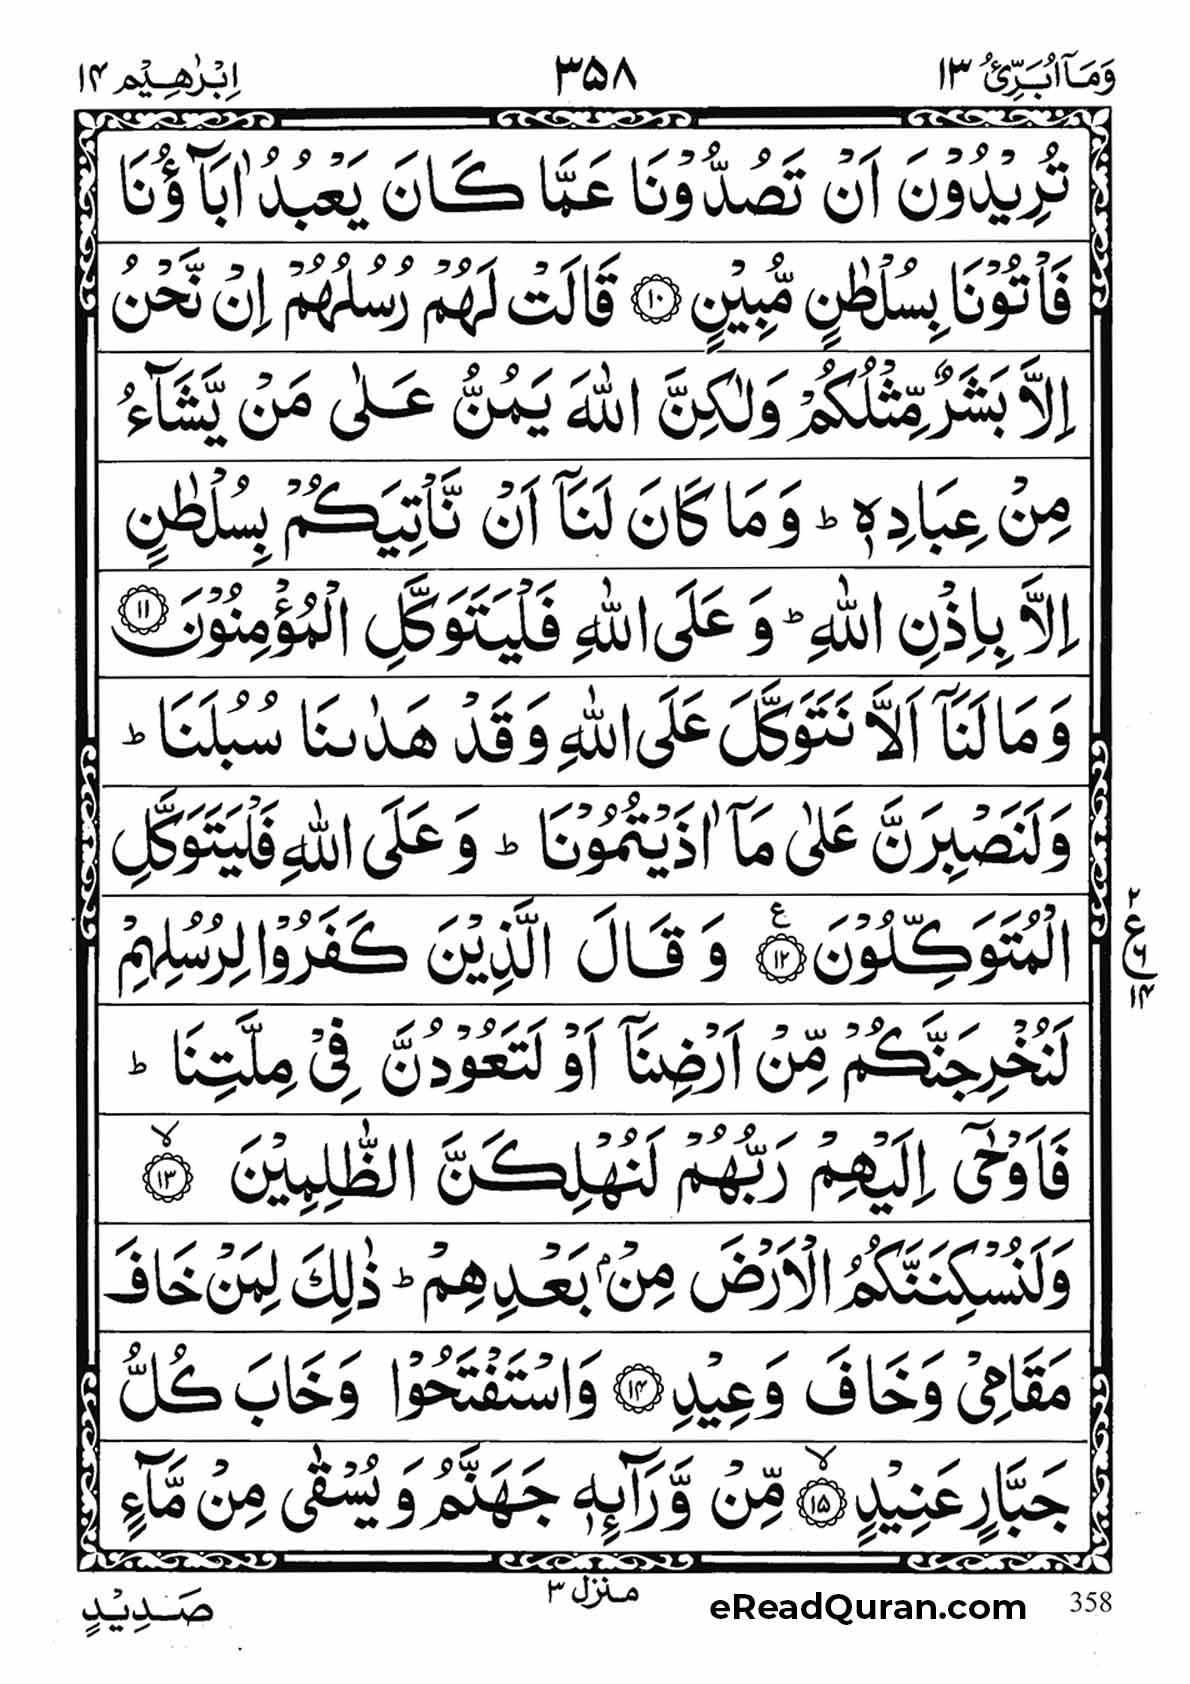 وَمَآ اُبَرِّئُ ۱۳ ۳۵۸ اِبْرٰهِيْم ۱۴
تُرِيْدُوْنَ اَنْ تَصُدُّوْنَا عَمَّا كَانَ يَعْبُدُ اٰبَآؤُنَا
فَاْتُوْنَا بِسُلْطٰنٍ مُّبِيْنٍ ۱۰ قَالَتْ لَهُمْ رُسُلُهُمْ اِنْ نَّحْنُ
اِلَّا بَشَرٌ مِّثْلُكُمْ وَلٰكِنَّ اللّٰهَ يَمُنُّ عَلٰى مَنْ يَّشَآءُ
مِنْ عِبَادِهٖ ؕ وَمَا كَانَ لَنَآ اَنْ نَّاْتِيَكُمْ بِسُلْطٰنٍ
اِلَّا بِاِذْنِ اللّٰهِ ؕ وَعَلَى اللّٰهِ فَلْيَتَوَكَّلِ الْمُؤْمِنُوْنَ ۱۱
وَمَا لَنَآ اَلَّا نَتَوَكَّلَ عَلَى اللّٰهِ وَقَدْ هَدٰىنَا سُبُلَنَا ؕ
وَلَنَصْبِرَنَّ عَلٰى مَآ اٰذَيْتُمُوْنَا ؕ وَعَلَى اللّٰهِ فَلْيَتَوَكَّلِ
الْمُتَوَكِّلُوْنَ ۱۲ ع وَقَالَ الَّذِيْنَ كَفَرُوْا لِرُسُلِهِمْ
۲
ع
۶
۱۴
لَنُخْرِجَنَّكُمْ مِّنْ اَرْضِنَآ اَوْ لَتَعُوْدُنَّ فِيْ مِلَّتِنَا ؕ
فَاَوْحٰٓى اِلَيْهِمْ رَبُّهُمْ لَنُهْلِكَنَّ الظّٰلِمِيْنَ ۱۳ ۙ
وَلَنُسْكِنَنَّكُمُ الْاَرْضَ مِنْۢ بَعْدِهِمْ ؕ ذٰلِكَ لِمَنْ خَافَ
مَقَامِيْ وَخَافَ وَعِيْدِ ۱۴ وَاسْتَفْتَحُوْا وَخَابَ كُلُّ
جَبَّارٍ عَنِيْدٍ ۱۵ ۙ مِّنْ وَّرَآئِهٖ جَهَنَّمُ وَيُسْقٰى مِنْ مَّآءٍ
صَدِيْدٍ
منزل ۳
eReadQuran.com
358